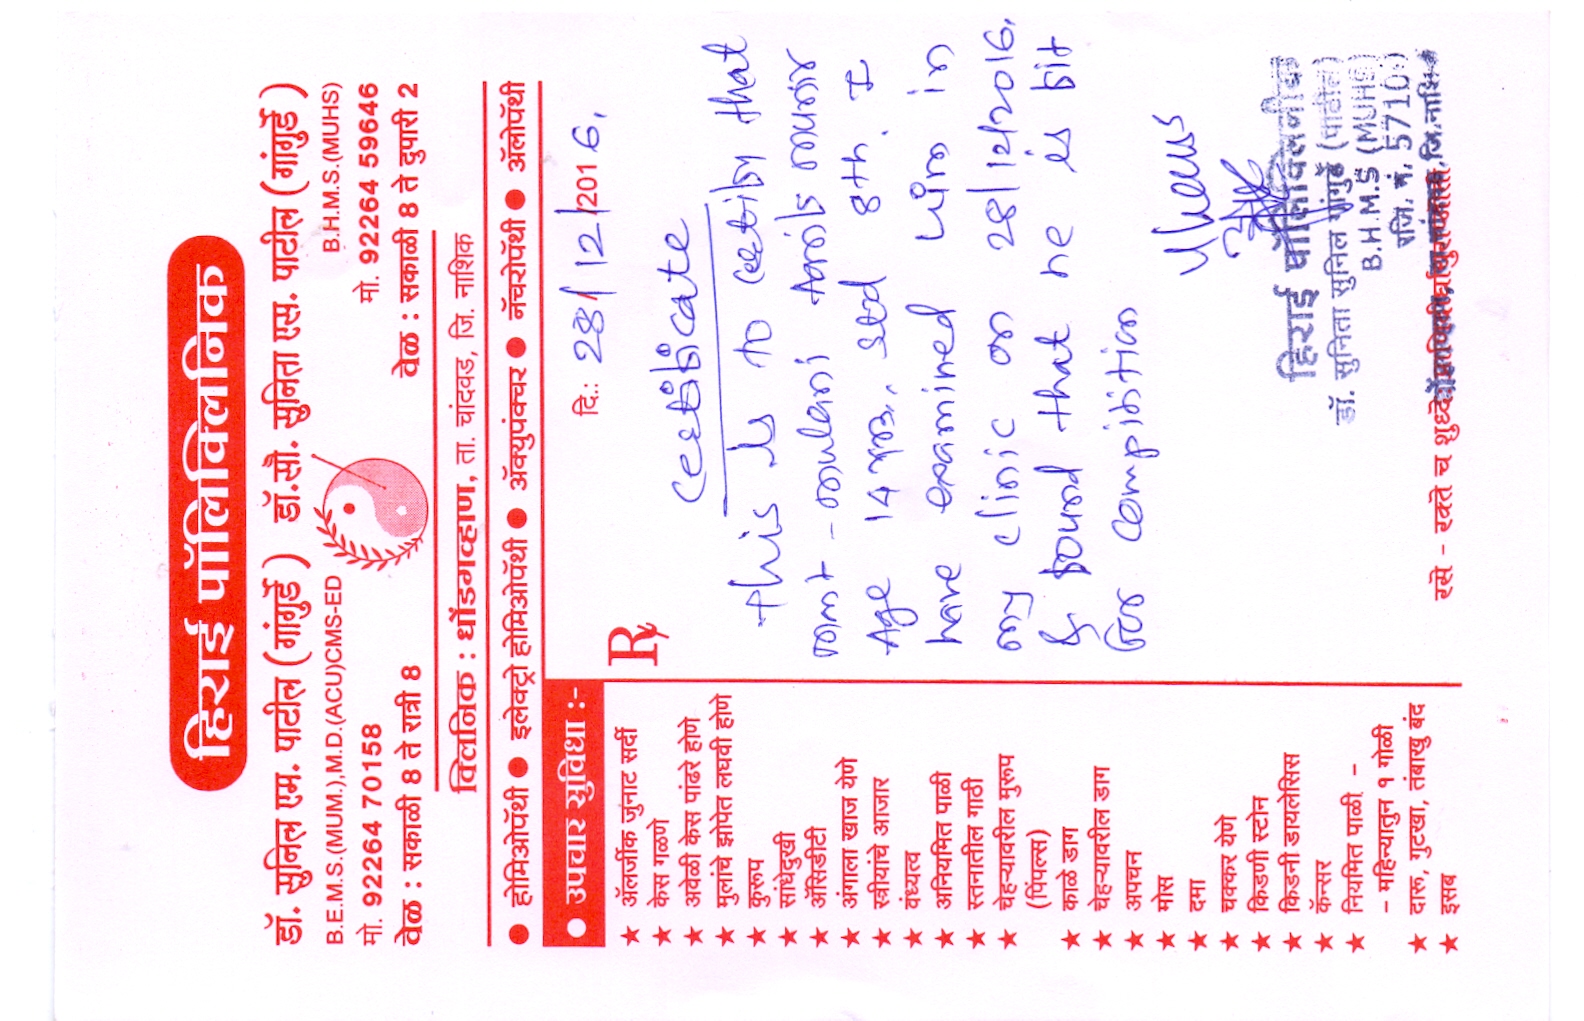 हिराई पॉलिक्लिनिक
डॉ. सुनिल एम. पाटील (गांगुर्डे) डॉ.सौ. सुनिता एस. पाटील (गांगुर्डे)
B.E.M.S.(MUM.),M.D.(ACU)CMS-ED B.H.M.S.(MUHS)
मो. 92264 70158 मो. 92264 59646
वेळ : सकाळी 8 ते रात्री 8 वेळ : सकाळी 8 ते दुपारी 2
क्लिनिक : धोंडगव्हाण, ता. चांदवड, जि. नाशिक
● होमिओपॅथी ● इलेक्ट्रो होमिओपॅथी ● ॲक्युपंक्चर ● नॅचरोपॅथी ● ॲलोपॅथी
● उपचार सुविधा :-
★ ॲलर्जीक जुनाट सर्दी
★ केस गळणे
★ अवेळी केस पांढरे होणे
★ मुलांचे झोपेत लघवी होणे
★ कुरूप
★ सांधेदुखी
★ ॲसिडीटी
★ अंगाला खाज येणे
★ स्त्रीयांचे आजार
★ वंध्यत्व
★ अनियमित पाळी
★ स्तनातील गाठी
★ चेहऱ्यावरील मुरूम
(पिंपल्स)
★ काळे डाग
★ चेहऱ्यावरील डाग
★ अपचन
★ मोस
★ दमा
★ चक्कर येणे
★ किडणी स्टोन
★ किडनी डायलेसिस
★ कॅन्सर
★ नियमित पाळी -
- महिन्यातुन १ गोळी
★ दारू, गुटखा, तंबाखु बंद
★ इसब
दि.: 28/12/2016.
Rx
Certificate
this is to certify that
Age 14 yrs. std 8th. I
have examined him in
my clinic on 28/12/2016.
& found that he is bit
for compitition
हिराई पॉलिक्लिनीक
डॉ. सुनिता सुनिल गांगुर्डे (पाटील)
B.H.M.S (MUHS)
रजि. नं. 57105
रसे - रक्ते च शुध्दे